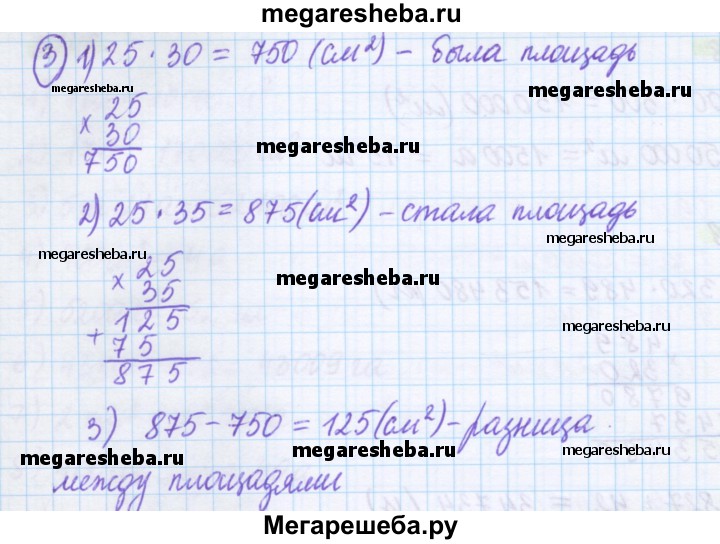 megaresheba.ru
3) 1) 25 · 30 = 750 (см²) – была площадь
megaresheba.ru
megaresheba.ru
× 25
30
750
megaresheba.ru
2) 25 · 35 = 875 (см²) – стала площадь
megaresheba.ru
megaresheba.ru
× 25
35
+ 125
75
875
megaresheba.ru
3) 875 – 750 = 125 (см²) – разница
megaresheba.ru
megaresheba.ru
megaresheba.ru
между площадями
Мегарешеба.ру